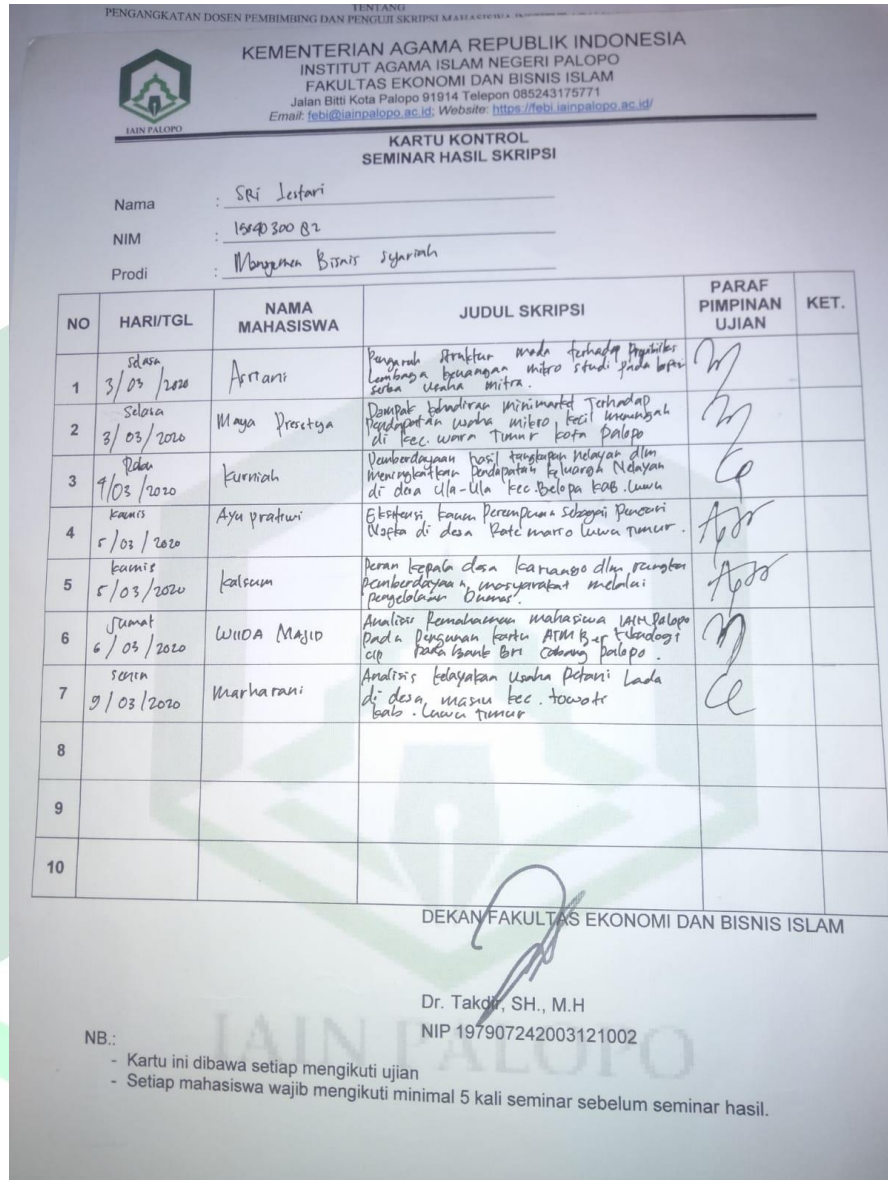 TENTANG
PENGANGKATAN DOSEN PEMBIMBING DAN PENGUJI SKRIPSI
KEMENTERIAN AGAMA REPUBLIK INDONESIA
INSTITUT AGAMA ISLAM NEGERI PALOPO
FAKULTAS EKONOMI DAN BISNIS ISLAM
Jalan Bitti Kota Palopo 91914 Telepon 085243175771
Email: febi@iainpalopo.ac.id; Website: https://febi.iainpalopo.ac.id/
IAIN PALOPO
KARTU KONTROL
SEMINAR HASIL SKRIPSI
Nama : SRi Lestari
NIM :
Prodi : Manajemen Bisnis Syariah
NO HARI/TGL NAMA MAHASISWA JUDUL SKRIPSI PARAF PIMPINAN UJIAN KET.
1 Selasa 3/03/2020
Pengaruh struktur terhadap
Lembaga keuangan mikro studi pada
serba usaha mitra.
2 Selasa 3/03/2020 Maya
Dampak kehadiran minimarket Terhadap
Pendapatan usaha mikro kecil menengah
di kec. wara Timur kota palopo
3 Rabu 4/03/2020 kurniah
Pemberdayaan hasil tangkapan nelayan dlm
meningkatkan Pendapatan keluarga Nelayan
di desa Ula-Ula kec. Belopa KAB. Luwu
4 kamis 5/03/2020 Ayu pratiwi
Eksistensi kaum Perempuan sebagai Pencari
Nafka di desa luwu timur.
5 kamis 5/03/2020 kalsum
Peran kepala desa dlm
pemberdayaan masyarakat melalui
pengelolaan bumdes.
6 Jumat 6/03/2020 WIIDA MAJID
Analisis Pemahaman mahasiswa IAIN Palopo
pada kartu ATM
pada Bank BRI Cabang palopo.
7 senin 9/03/2020 Marharani
Analisis kelayakan usaha Petani Lada
di desa kec. towoti
kab. Luwu timur
8
9
10
DEKAN FAKULTAS EKONOMI DAN BISNIS ISLAM
Dr. Takdir, SH., M.H
NIP 197907242003121002
NB.:
- Kartu ini dibawa setiap mengikuti ujian
- Setiap mahasiswa wajib mengikuti minimal 5 kali seminar sebelum seminar hasil.
IAIN PALOPO